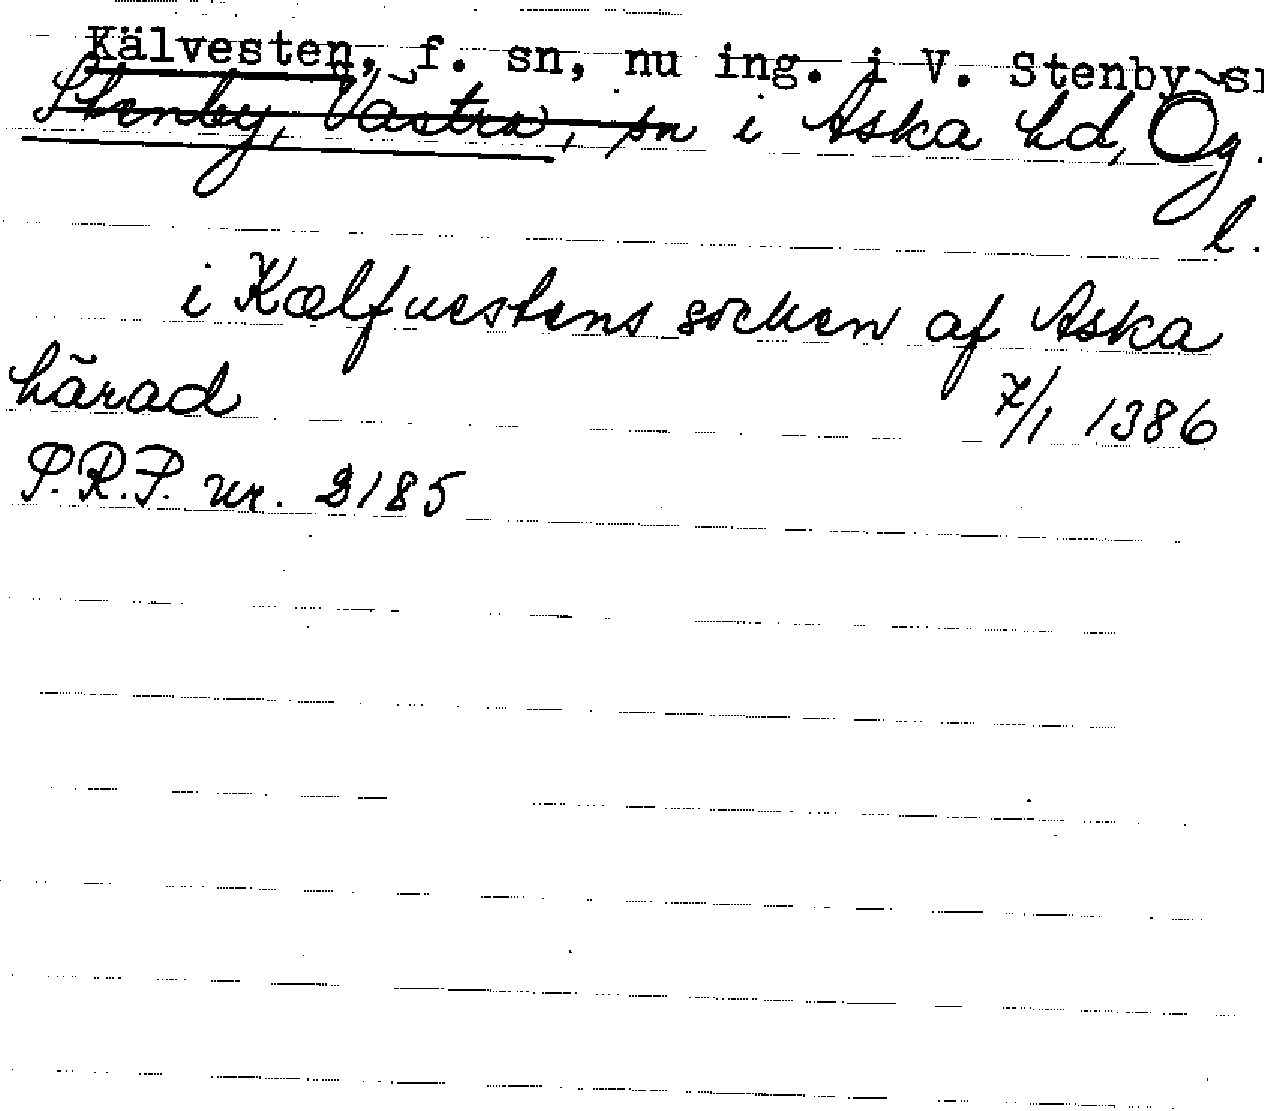 Kälvesten, f. sn, nu ing. i V. Stenby sn
Stenby, Västra, sn i Aska hd, Ög.
l.
i Kælfuestens socken af Aska
härad 7/1 1386
S.R.P. nr. 2185